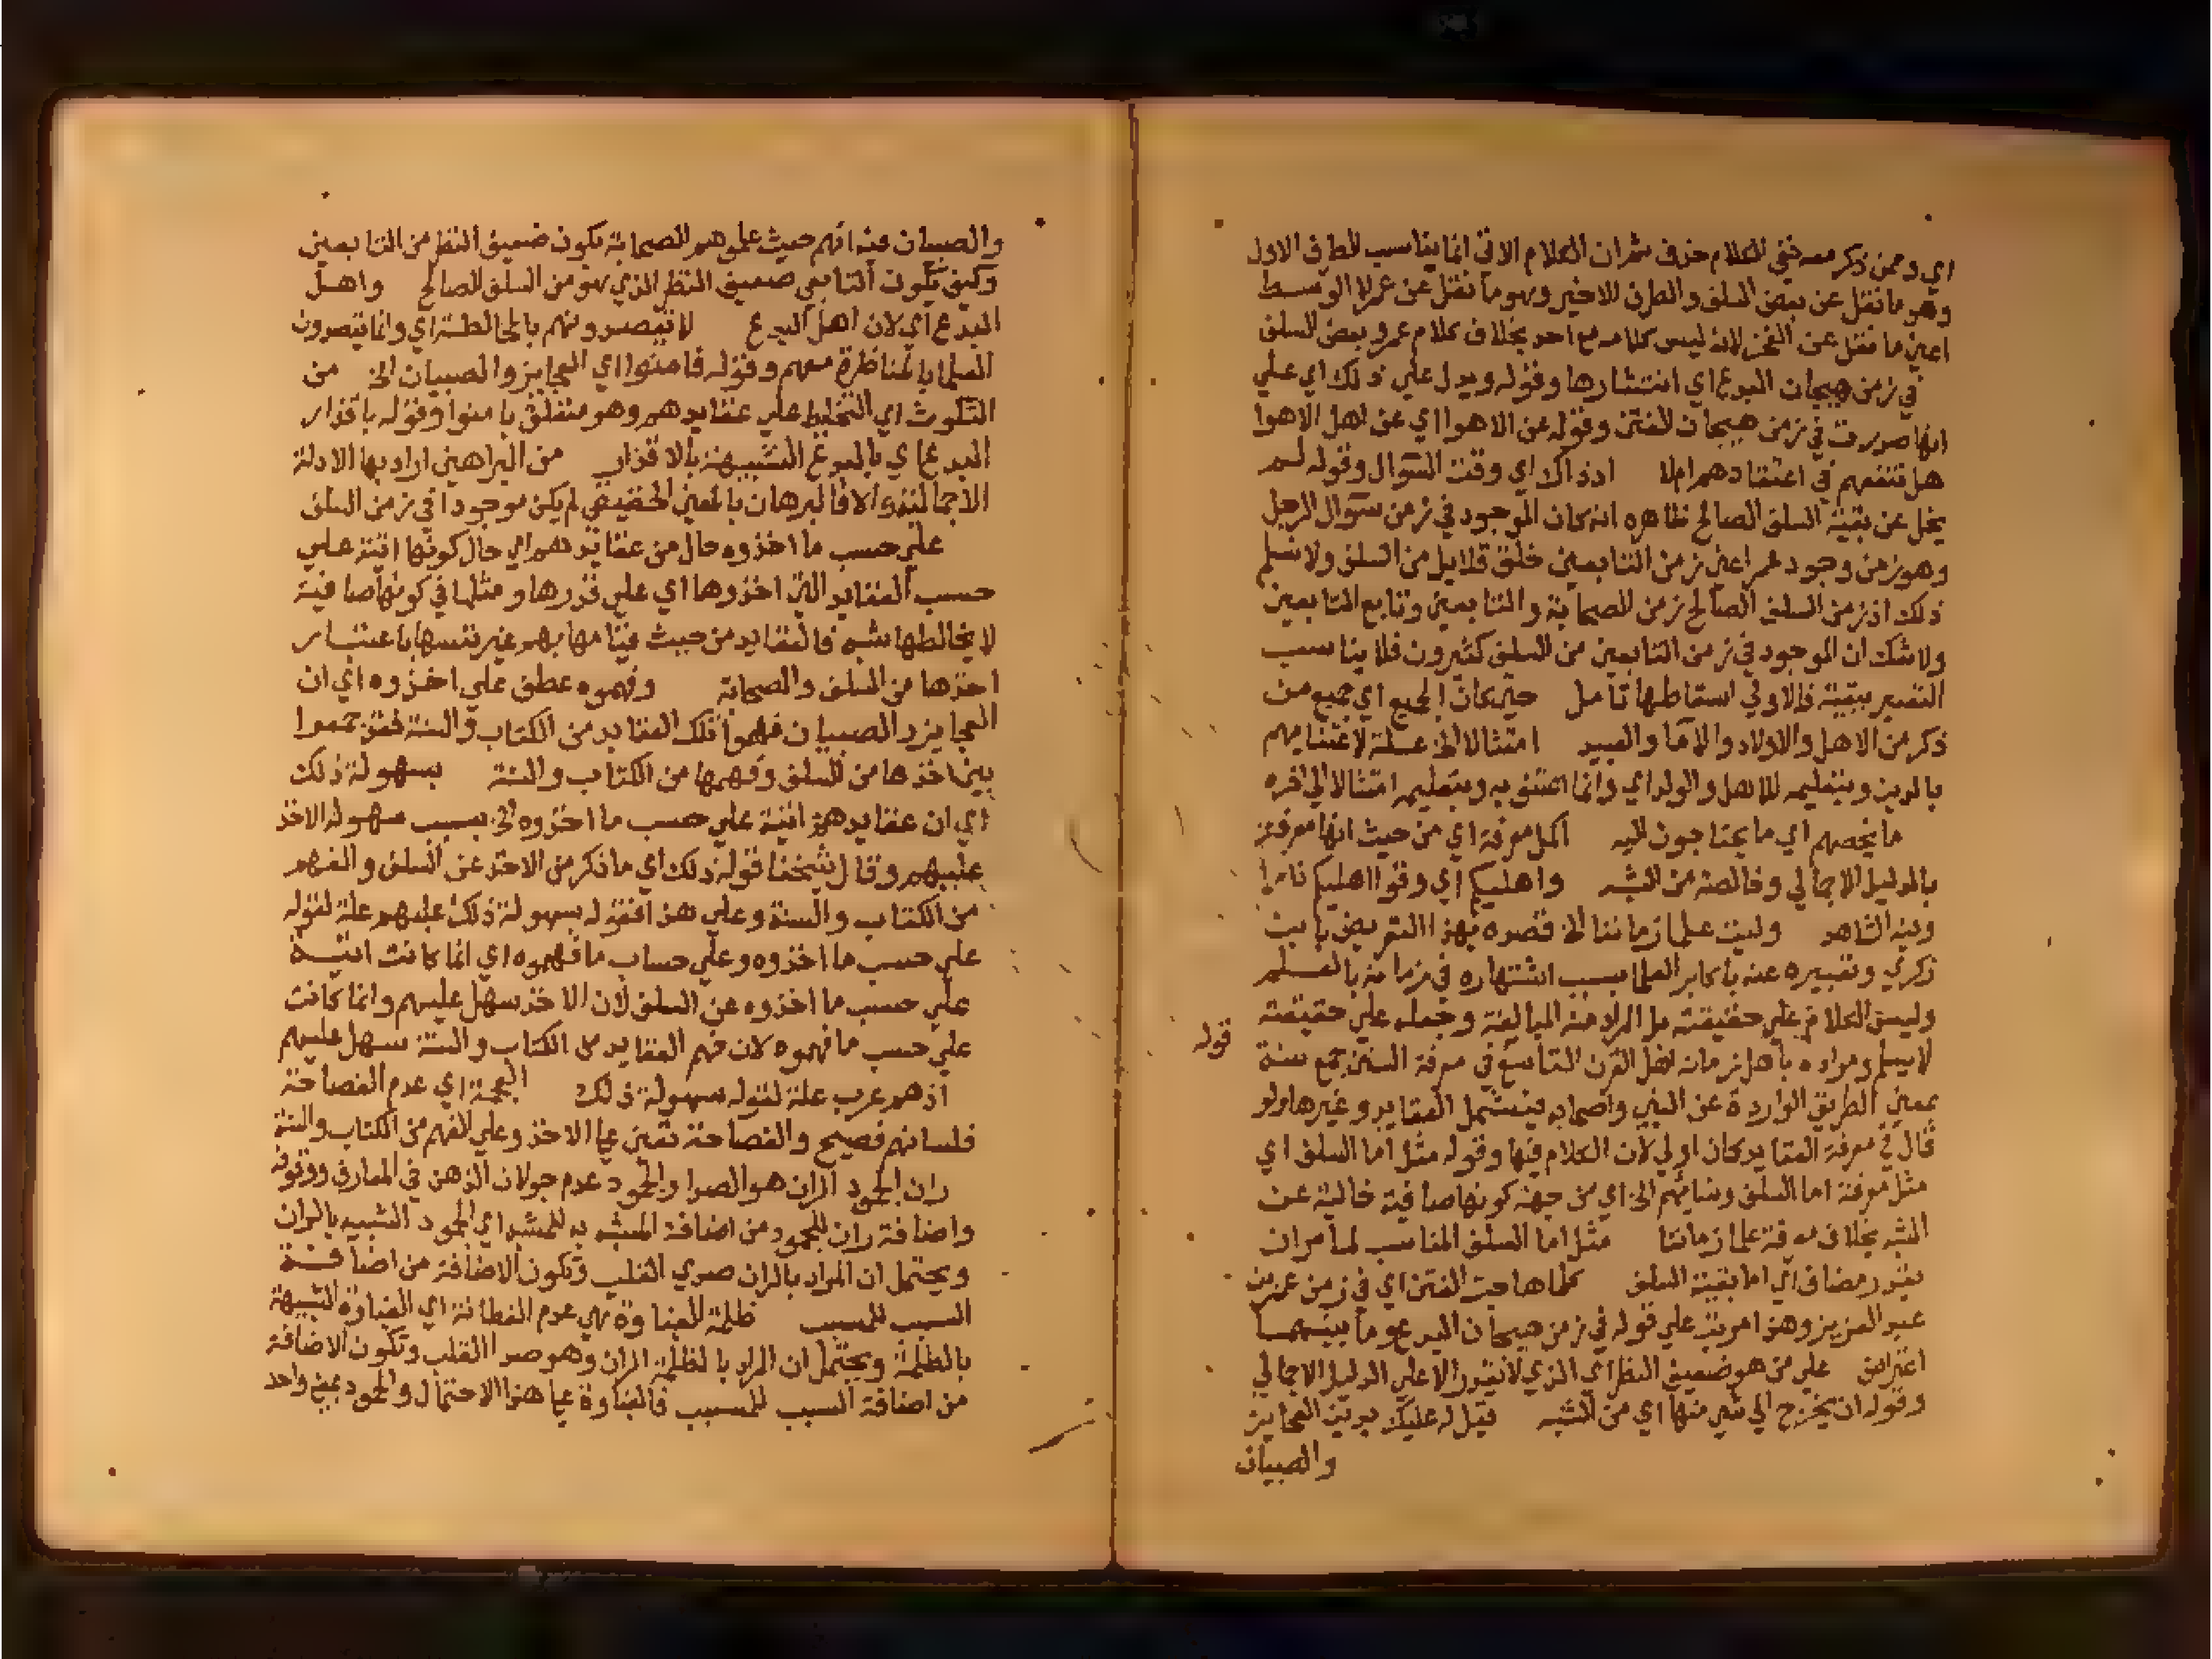 اي وممن ذكر معه ففي الكلام حذف ثم ان الكلام الاتي انما يناسب الطرف الاول
وهو ما نقل عن بعض السلف والطرف الاخير وهو ما نقل عن عمر لا الوسط
اعني ما نقل عن الفخر لانه ليس كلامه مع احد بخلاف كلام عمر وبعض السلف
في زمن هيجان البدع اي انتشارها وقوله ويدل علي ذلك اي علي
انها صدرت في زمن هيجان الفتن وقوله عن الاهوا اي عن اهل الاهوا
هل تنفعهم في اعتقادهم ام لا اذ ذاك اي وقت السؤال وقوله لم
يخل عن بقية السلف الصالح ظاهره انه كان الموجود في زمن سؤال الرجل
وهو زمن وجود عمر اعني زمن التابعين خلق قلايل من السلف ولا نسلم
ذلك اذ زمن السلف الصالح زمن الصحابة والتابعين وتابع التابعين
ولا شك ان الموجود في زمن التابعين من السلف كثيرون فلا يناسب
التعبير ببقية فالاولي اسقاطها تامل حين كان الجميع اي جميع من
ذكر من الاهل والاولاد والاما والعبيد امتثالا الخ علة لاعتنايهم
بالدين وبتعليمه للاهل والولد اي وانما اعتنوا به وبتعليمه امتثالا الي اخره
ما يخصهم اي ما يحتاجون اليه اكمل معرفة اي من حيث انها معرفة
بالدليل الاجمالي وخالصة من الشبه واهليكم اي وقوا اهليكم نارا
وليت علما زماننا الخ قصده بهذا التعريض بابن
ذكري وتعبيره عنه باكابر العلما بسبب اشتهاره في زمانه بالعلم
وليس الكلام علي حقيقته بل المراد منه المبالغة وحمله علي حقيقته
قوله
لا يسلم ومراده باهل زمانه اهل القرن التاسع في معرفة السنن جمع سنة
بمعني الطريق الواردة عن النبي واصحابه فيشمل العقايد وغيرها ولو
قال في معرفة العقايد كان اولي لان الكلام فيها وقوله مثل اما السلف اي
مثل معرفة اما السلف ونسائهم الخ اي من جهة كونها صافية خالية عن
الشبه بخلاف معرفة علما زماننا مثل اما السلف المناسب لما مر ان
يقدر مضاف اي اما بقية السلف كلما هاجت الفتن اي في زمن عمر بن
عبد العزيز وهذا مرتب علي قوله في زمن هيجان البدع وما بينهما
اعتراض علي من هو ضعيف النظر اي الذي لا يقدر الا علي الدليل الاجمالي
وقوله ان يخرج الي شي منها اي من الشبه قيل له عليك بدين العجايز
والصبيان
والصبيان فيه انهم حيث علموهم الصحابة يكون ضعيف النظر من التابعين
وكيف يكون التابعي ضعيف النظر الذي هو من السلف الصالح واهل
البدع اي لان اهل البدع لا يقصدونهم بالمخالطة اي وانما يقصدون
العلما بالمناظرة معهم وقوله فامنوا اي العجايز والصبيان الخ من
التلوث اي التخليط علي عقايدهم وهو متعلق بامنوا وقوله باقذار
البدع اي بالبدع الشبيهة بالاقذار من البراهين اراد بها الادلة
الاجمالية والا فالبرهان بالمعني الحقيقي لم يكن موجودا في زمن السلف
علي حسب ما اخذوه حال من عقايدهم اي حال كونها اتية علي
حسب العقايد التي اخذوها اي علي قدرها ومثلها في كونها صافية
لا يخالطها شبه فالعقايد من حيث قيامها بهم غير نفسها باعتبار
اخذها من السلف والصحابة وفهموه عطف علي اخذوه اي ان
العجايز والصبيان فهموا تلك العقايد من الكتاب والسنة فقد جمعوا
بين اخذها من السلف وفهمها من الكتاب والسنة بسهولة ذلك
اي ان عقايدهم اتية علي حسب ما اخذوه الخ بسبب سهولة الاخذ
عليهم وقال شيخنا قوله ذلك اي ما ذكر من الاخذ عن السلف والفهم
من الكتاب والسنة وعلي هذا فقوله بسهولة ذلك عليهم علة لقوله
علي حسب ما اخذوه وعلي حساب ما فهموه اي انما كانت اتية
علي حسب ما اخذوه عن السلف لان الاخذ سهل عليهم وانما كانت
علي حسب ما فهموه لان فهم العقايد من الكتاب والسنة سهل عليهم
اذ هم عرب علة لقوله سهولة ذلك العجمة اي عدم الفصاحة
فلسانهم فصيح والفصاحة تعين علي الاخذ وعلي الفهم من الكتاب والسنة
ران الجمود الران هو الصدا والجمود عدم جولان الذهن في المعارف ووقوفه
واضافة ران للجمود من اضافة المشبه به للمشبه اي الجمود الشبيه بالران
ويحتمل ان المراد بالران صدي القلب وتكون الاضافة من اضافة
السبب للمسبب ظلمة الغباوة هي عدم الفطانة اي الغباوة الشبيهة
بالظلمة ويحتمل ان المراد بالظلمة الران وهو صدا القلب وتكون الاضافة
من اضافة السبب للمسبب فالغباوة علي هذا الاحتمال والجمود بمعني واحد